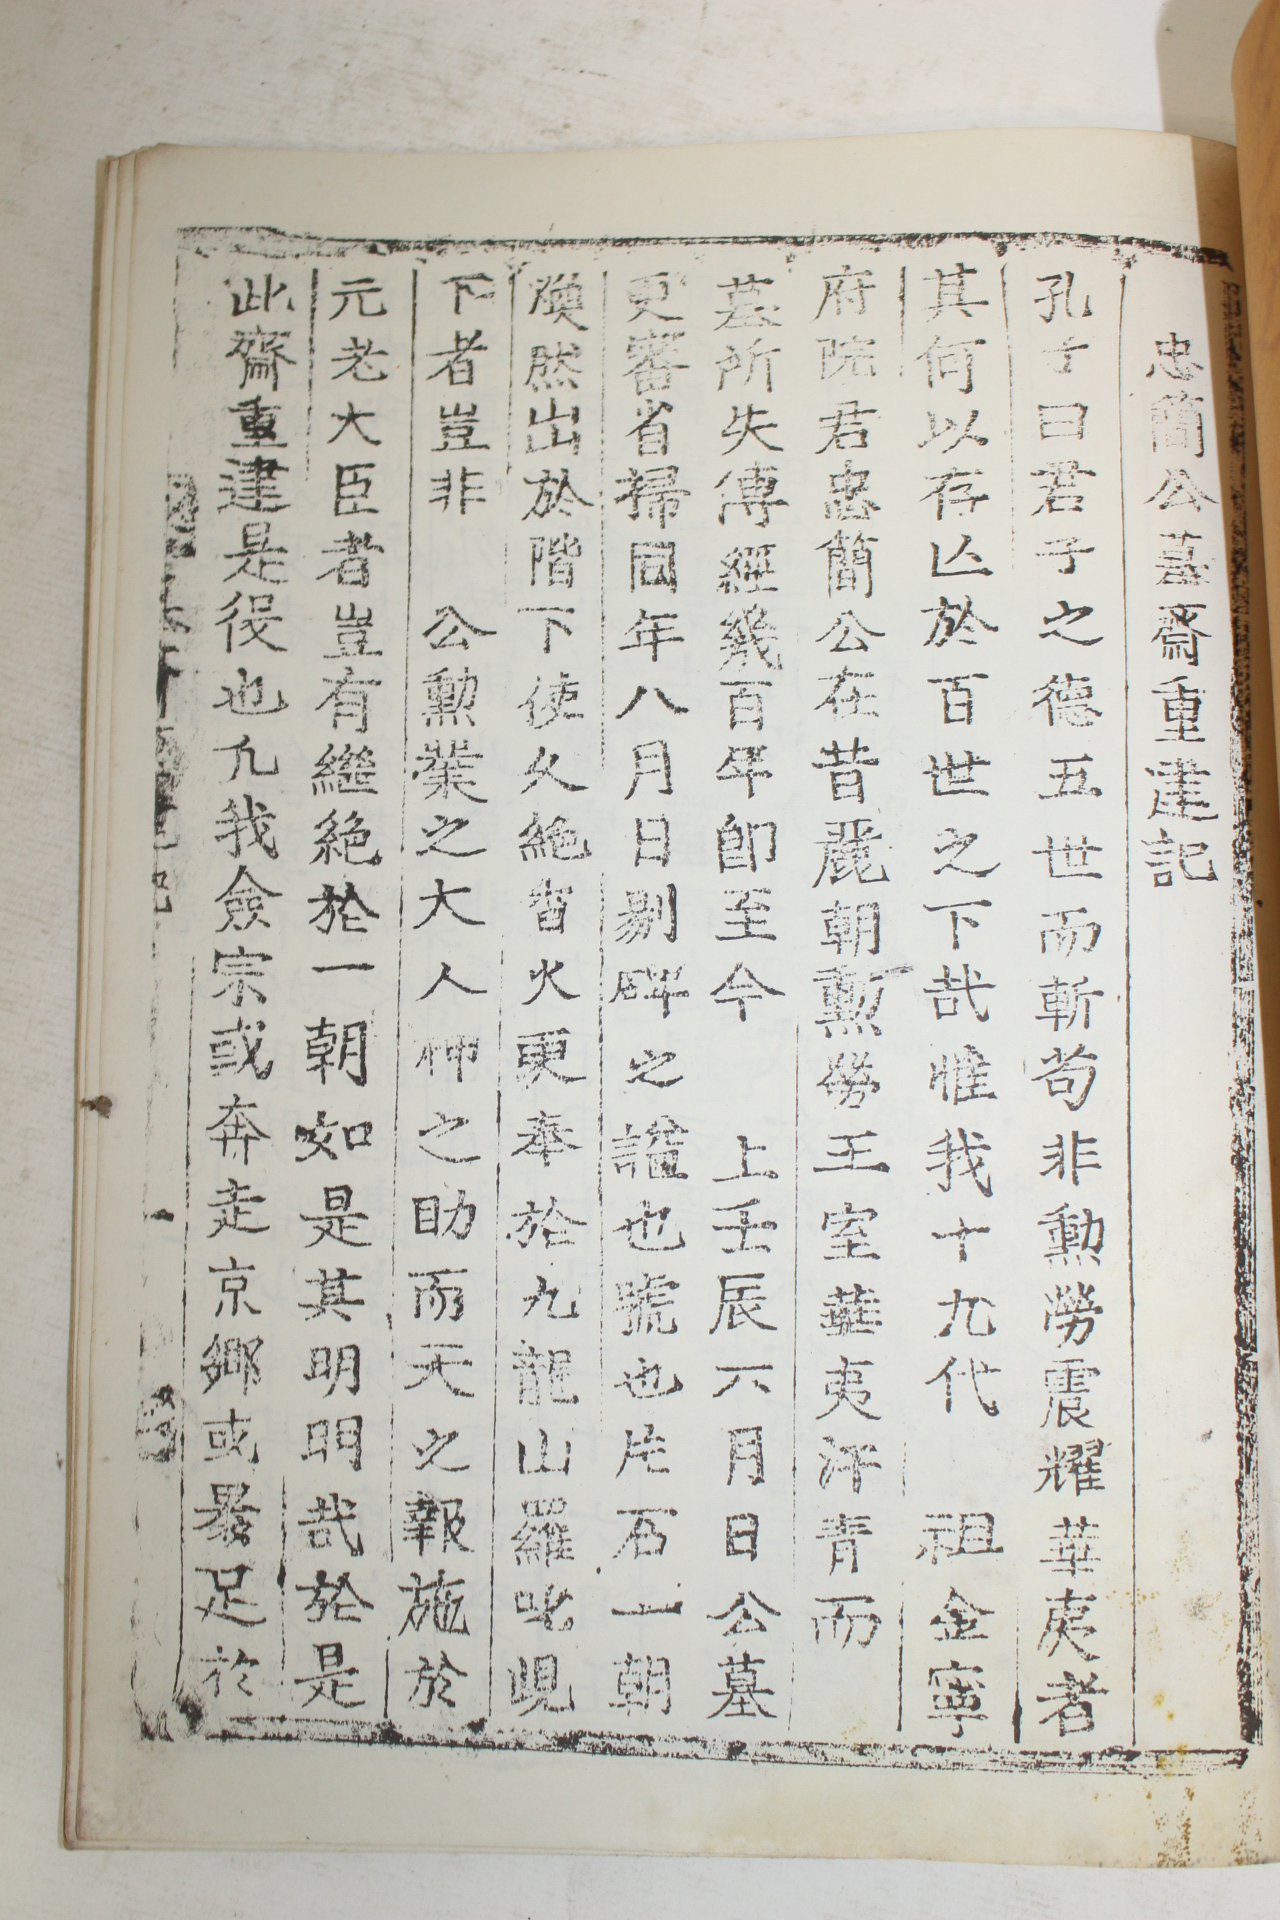 忠簡公墓齋重建記
孔子曰君子之德五世而斬苟非勳勞震耀華夷者
其何以存亾於百世之下哉惟我十九代 祖金寧
府院君忠簡公在昔麗朝勳勞王室華夷汗青而
墓所失傳經幾百年卽至今 上壬辰六月日公墓
更審省掃同年八月日剔碑之諡也號也片石一朝
煥然出於階下使久絶香火更奉於九龍山羅叱峴
下者豈非 公勳業之大人神之助而天之報施於
元老大臣者豈有繼絶於一朝如是其明明哉於是
此齋重建是役也凡我僉宗或奔走京鄉或暴足於